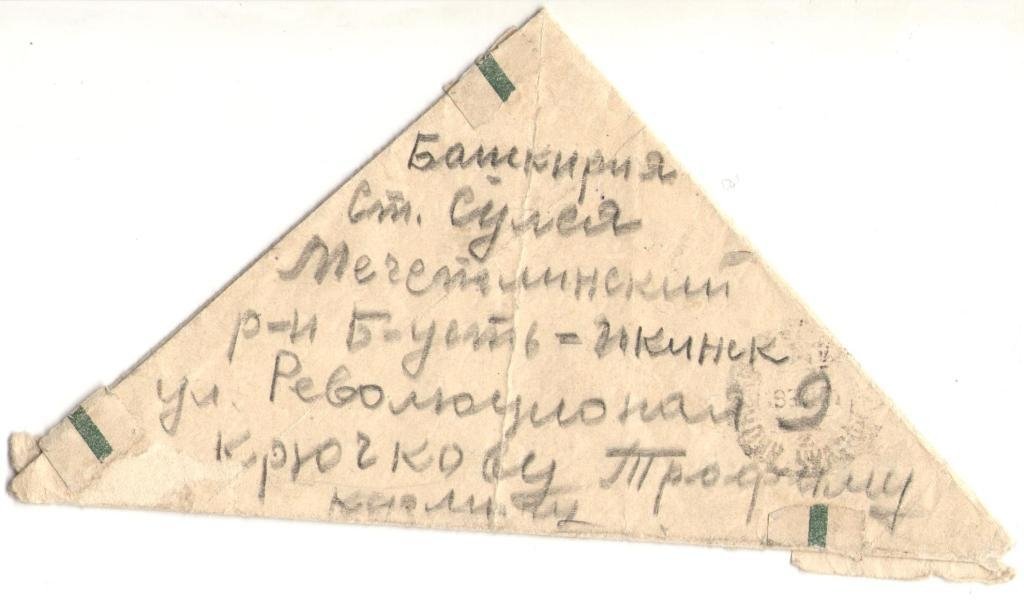 Башкирия
Ст. Сулея
Мечетлинский
р-н Б-усть-Икинск
ул. Революционая 9
Крючкову Трофиму